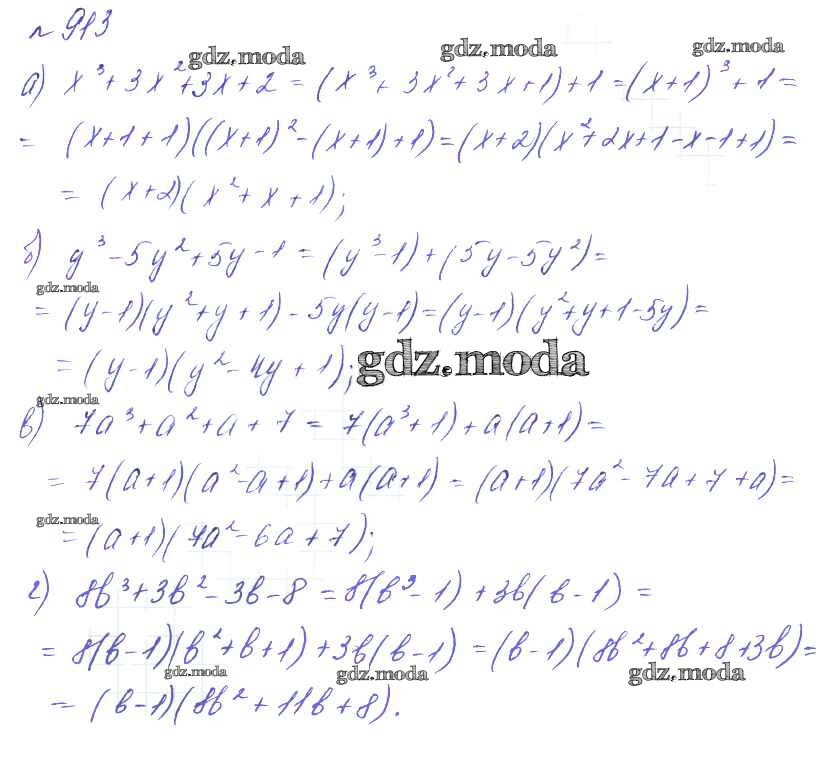 № 913
gdz.moda gdz.moda gdz.moda
а) x³ + 3x² + 3x + 2 = (x³ + 3x² + 3x + 1) + 1 = (x + 1)³ + 1 =
= (x + 1 + 1)((x + 1)² - (x + 1) + 1) = (x + 2)(x² + 2x + 1 - x - 1 + 1) =
= (x + 2)(x² + x + 1);
б) y³ - 5y² + 5y - 1 = (y³ - 1) + (5y - 5y²) =
gdz.moda
= (y - 1)(y² + y + 1) - 5y(y - 1) = (y - 1)(y² + y + 1 - 5y) =
= (y - 1)(y² - 4y + 1); gdz.moda
gdz.moda
в) 7a³ + a² + a + 7 = 7(a³ + 1) + a(a + 1) =
= 7(a + 1)(a² - a + 1) + a(a + 1) = (a + 1)(7a² - 7a + 7 + a) =
gdz.moda
= (a + 1)(7a² - 6a + 7);
г) 8b³ + 3b² - 3b - 8 = 8(b³ - 1) + 3b(b - 1) =
= 8(b - 1)(b² + b + 1) + 3b(b - 1) = (b - 1)(8b² + 8b + 8 + 3b) =
gdz.moda gdz.moda gdz.moda
= (b - 1)(8b² + 11b + 8).